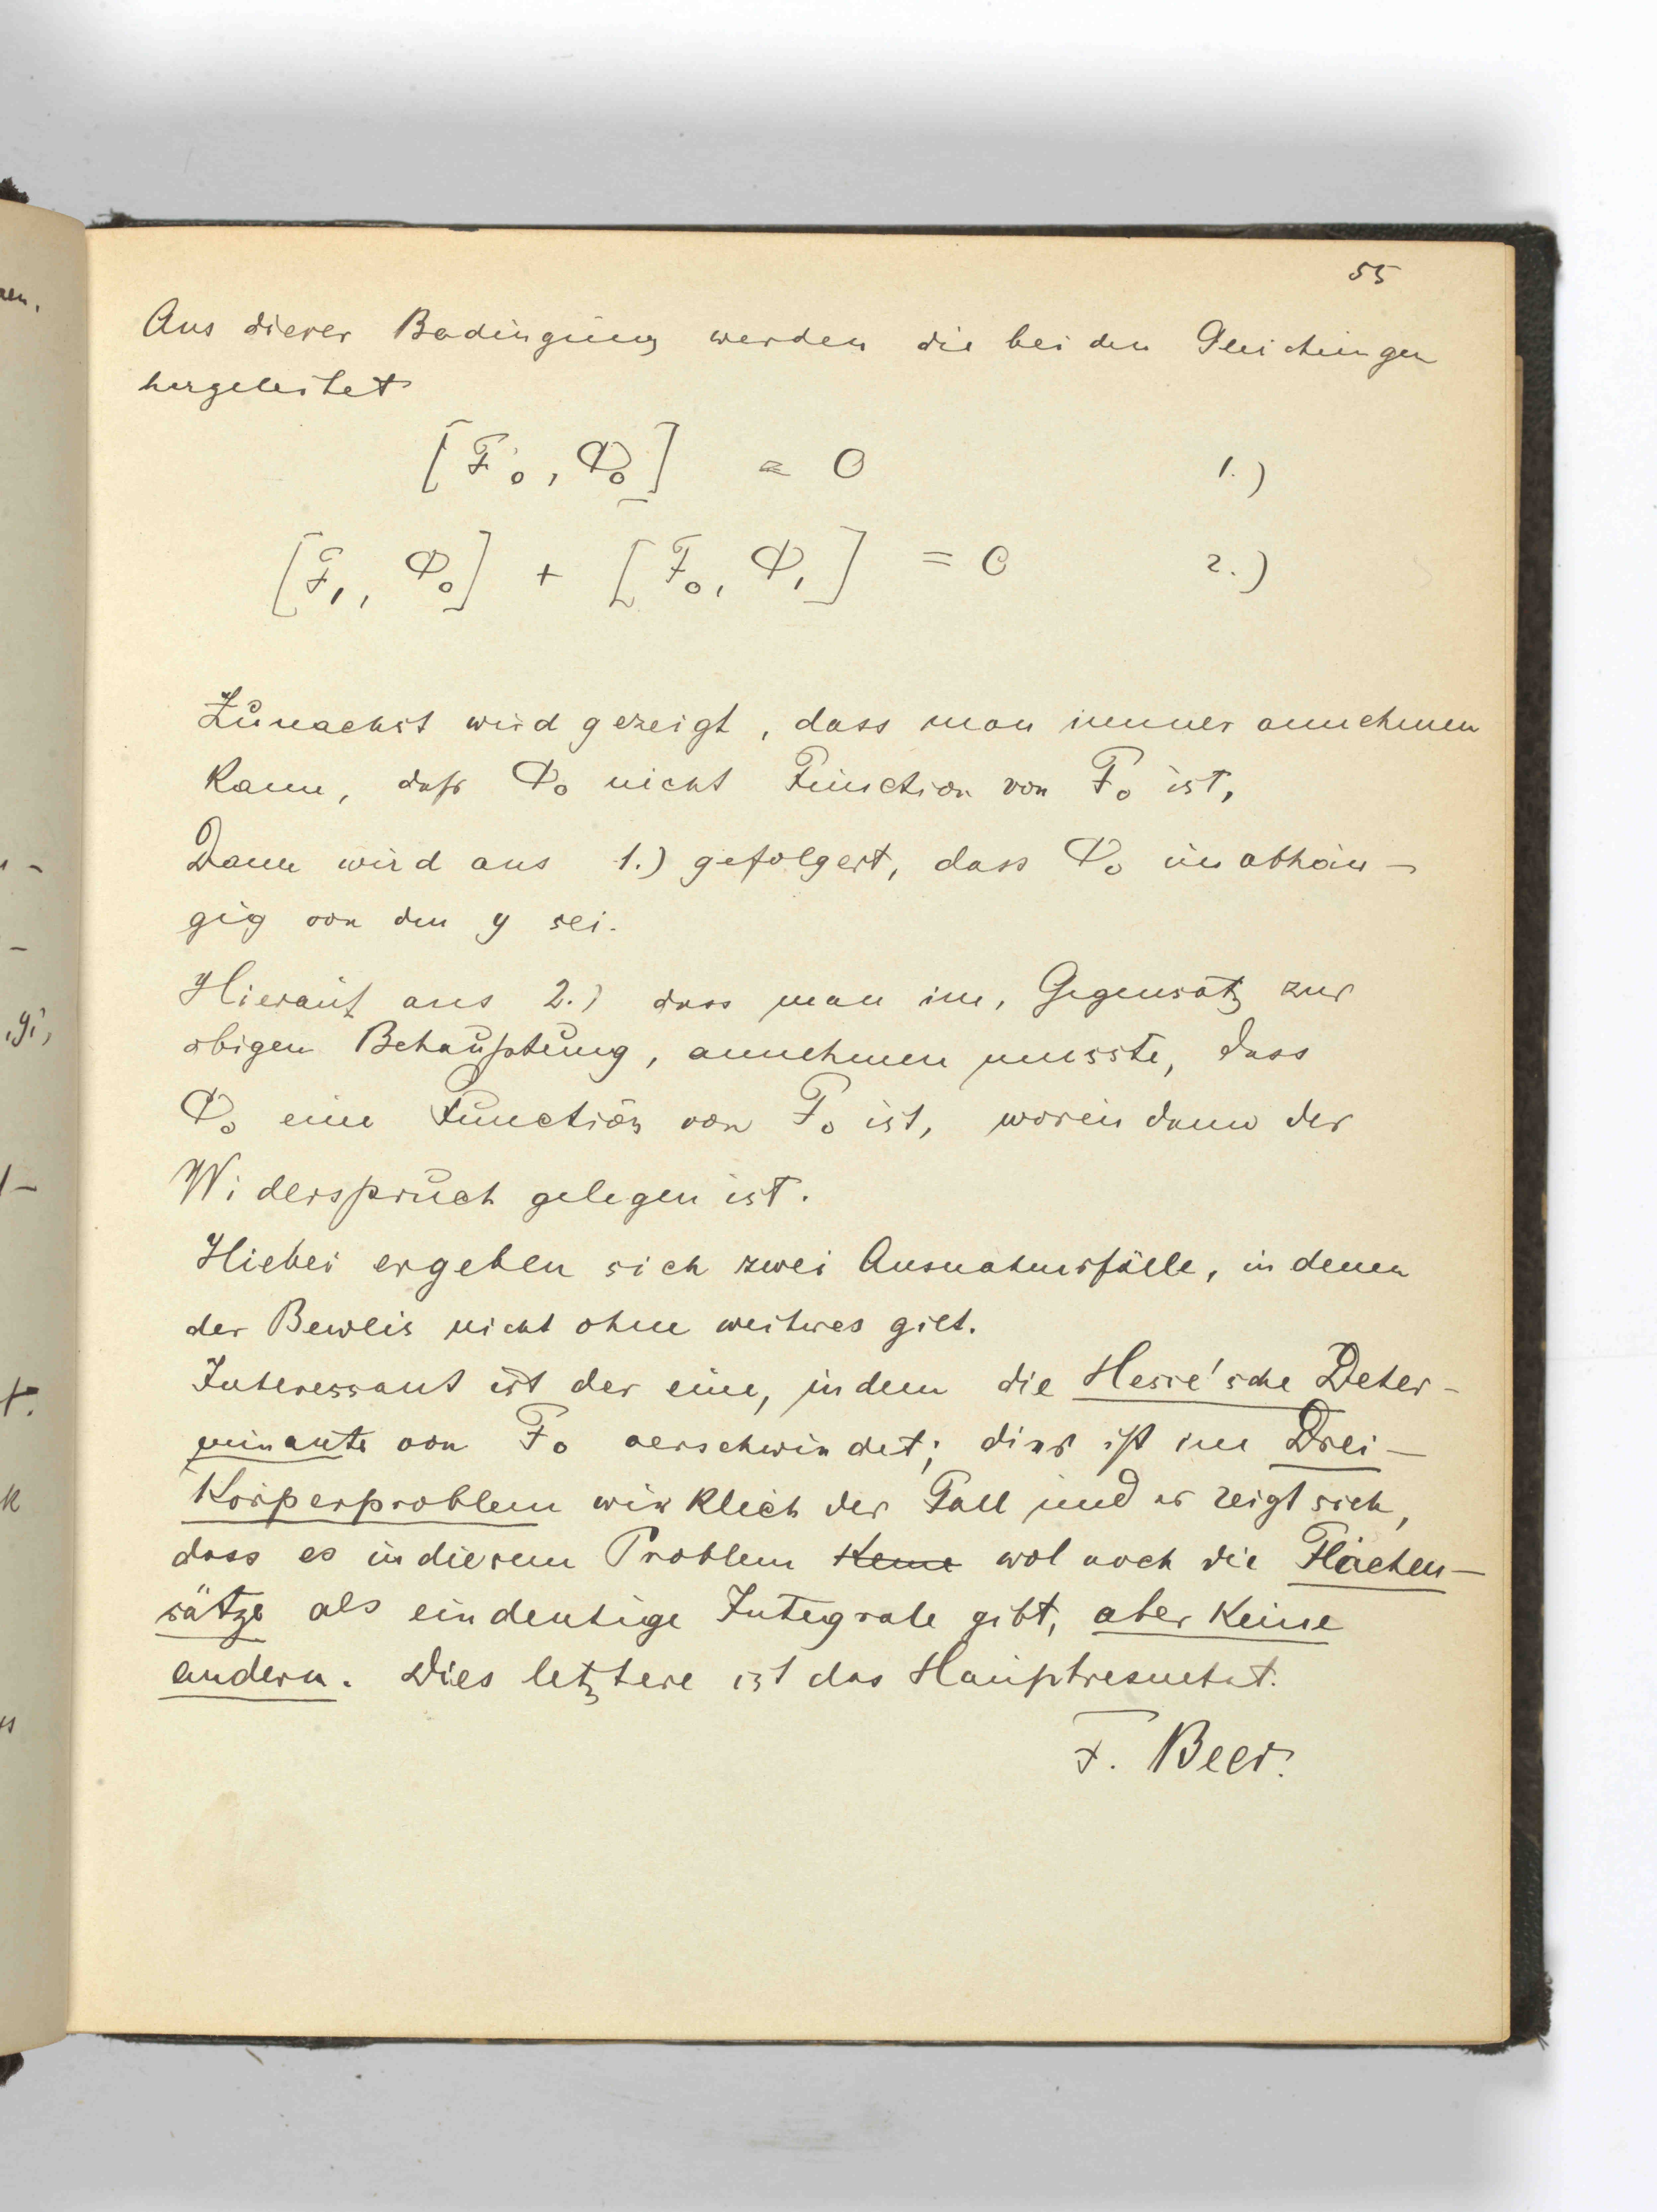 55
Aus dieser Bedingung werden die beiden Gleichungen
hergeleitet
[F₀, Φ₀] = 0 1.)
[F₁, Φ₀] + [F₀, Φ₁] = 0 2.)
Zunaechst wird gezeigt, dass man immer annehmen
kann, daß Φ₀ nicht Function von F₀ ist,
Dann wird aus 1.) gefolgert, dass Φ₀ unabhän-
gig von den y sei.
Hierauf aus 2.) dass man im, Gegensatz zur
obigen Behauptung, annehmen musste, dass
Φ₀ eine Function von F₀ ist, worein dann der
Widerspruch gelegen ist.
Hiebei ergeben sich zwei Ausnahmsfälle, in denen
der Beweis nicht ohne weiteres gilt.
Interessant ist der eine, in dem die Hesse'sche Deter-
minante von F₀ verschwindet; dies ist im Drei-
Körperproblem wirklich der Fall und es zeigt sich,
dass es in diesem Problem keine wol noch die Flächen-
sätze als eindeutige Integrale gibt, aber keine
andern. Dies letztere ist das Hauptresultat.
F. Beer.
gi,